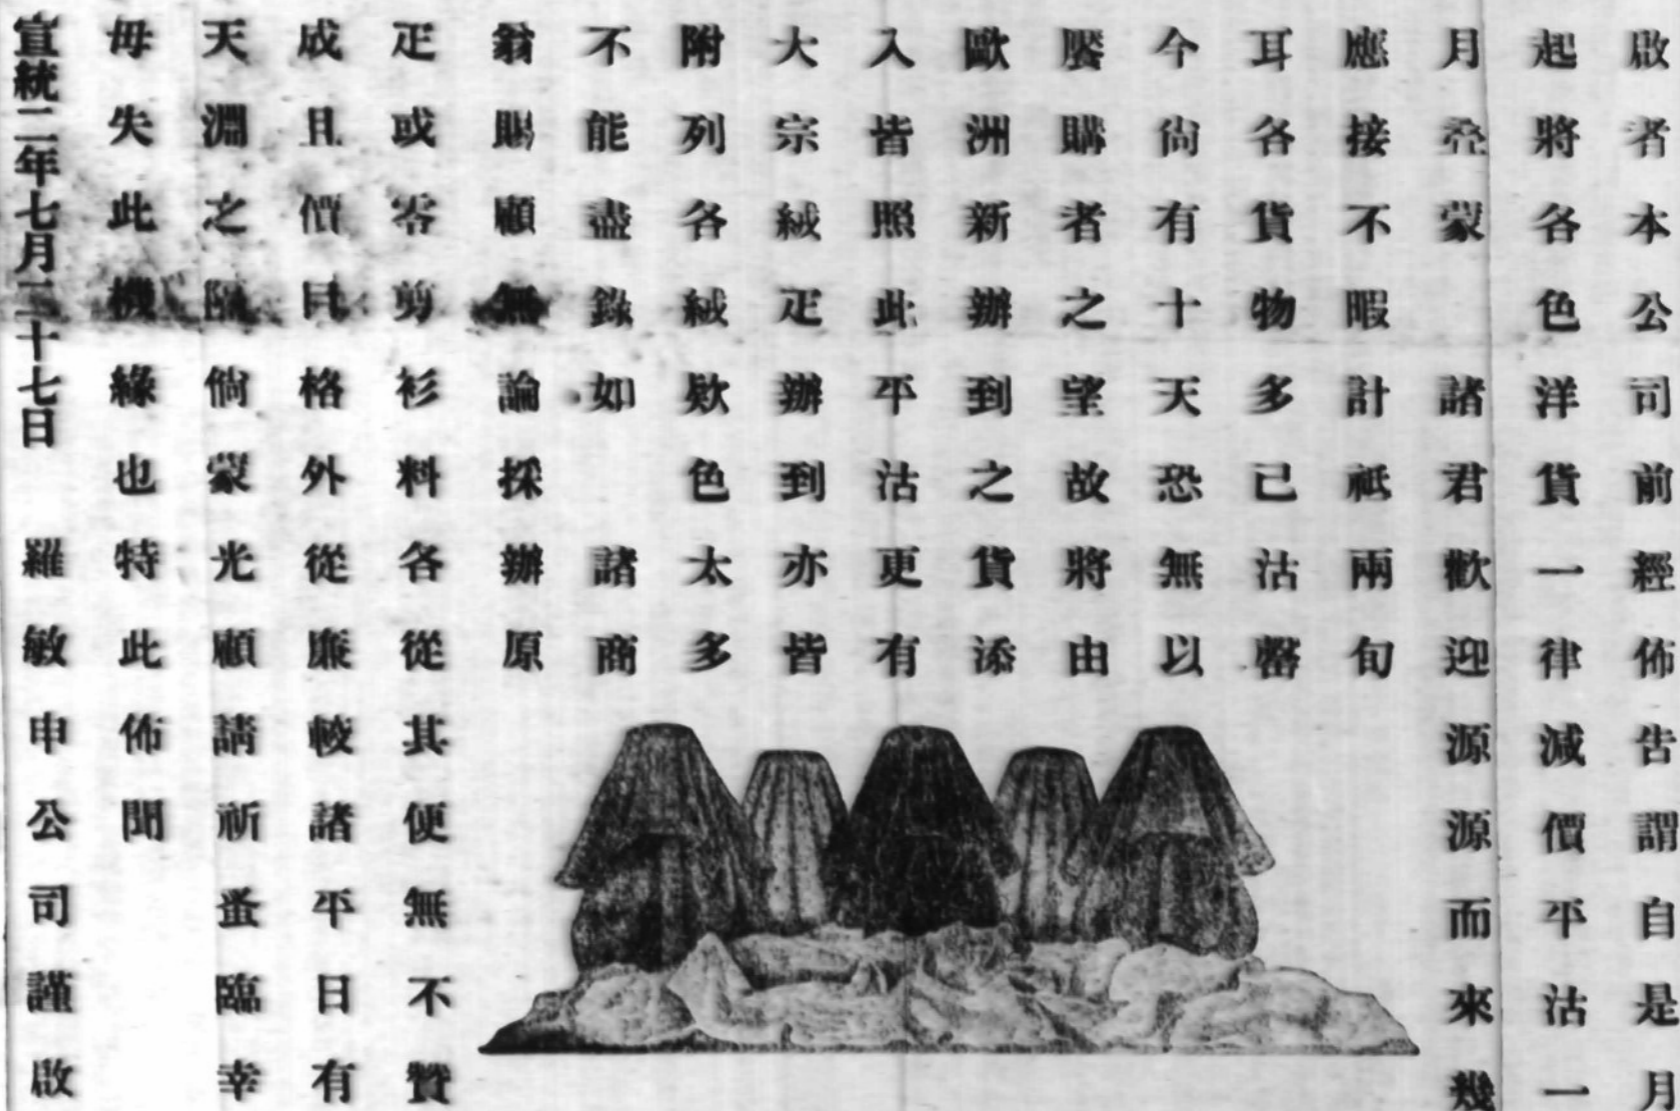 啟者本公司前經佈告謂自是月
起將各色洋貨一律減價平沽一
月叠蒙諸君歡迎源源而來幾
應接不暇計祗兩旬
耳各貨物多已沽罄
今尚有十天恐無以
饜購者之望故將由
歐洲新辦到之貨添
入皆照此平沽更有
大宗絨疋辦到亦皆
附列各絨欵色太多
不能盡錄如諸商
翁賜顧無論採辦原
疋或零剪衫料各從其便無不贊
成且價目格外從廉較諸平日有
天淵之隔倘蒙光顧請祈蚤臨幸
毋失此機緣也特此佈聞
宣統二年七月二十七日 羅敏申公司謹啟